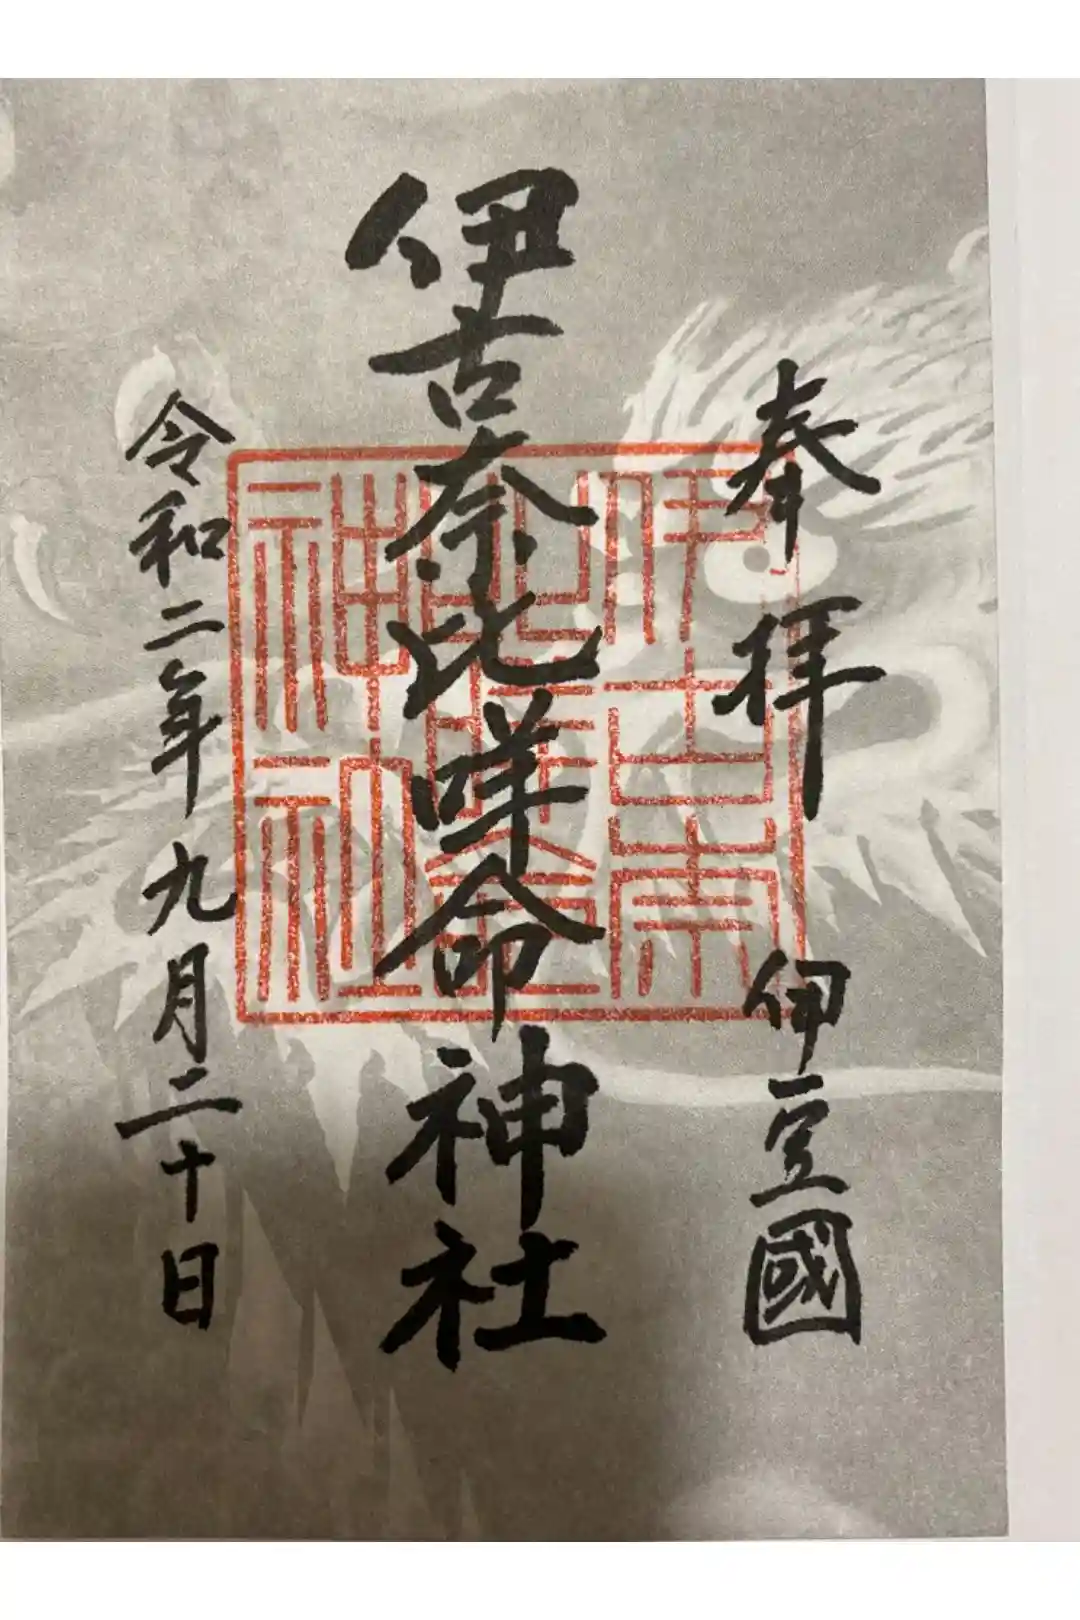 奉拝 伊豆國
伊古奈比咩命神社
伊古奈
比咩命
神社
令和二年九月二十日